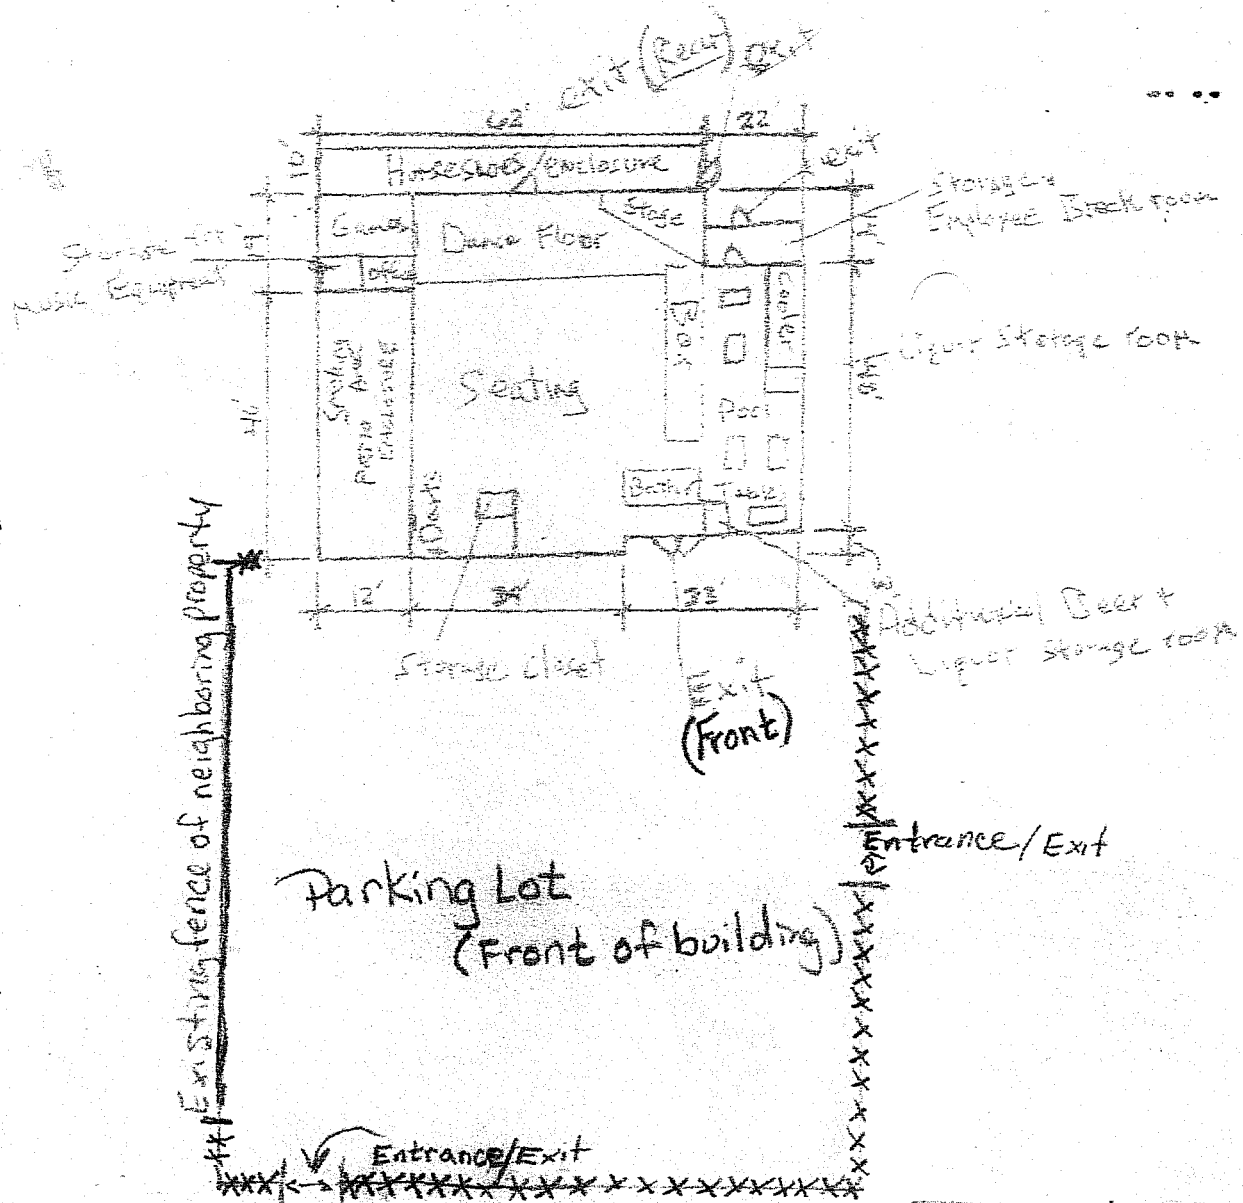 exit (Rear) exit
62' 22'
10'
Horseshoe/enclosure
exit
Storage &
Employee Break room
Games
Dance Floor
Stage
Storage for
Music Equipment
Office
Bar
Cooler
Liquor Storage room
Smoking
Area
Patio
Enclosure
Seating
Pool
Tables
46'
Darts
12' 33'
Storage Closet
Additional Beer +
Liquor Storage room
Exit
(Front)
Existing fence of neighboring property
Entrance/Exit
Parking Lot
(Front of building)
Entrance/Exit